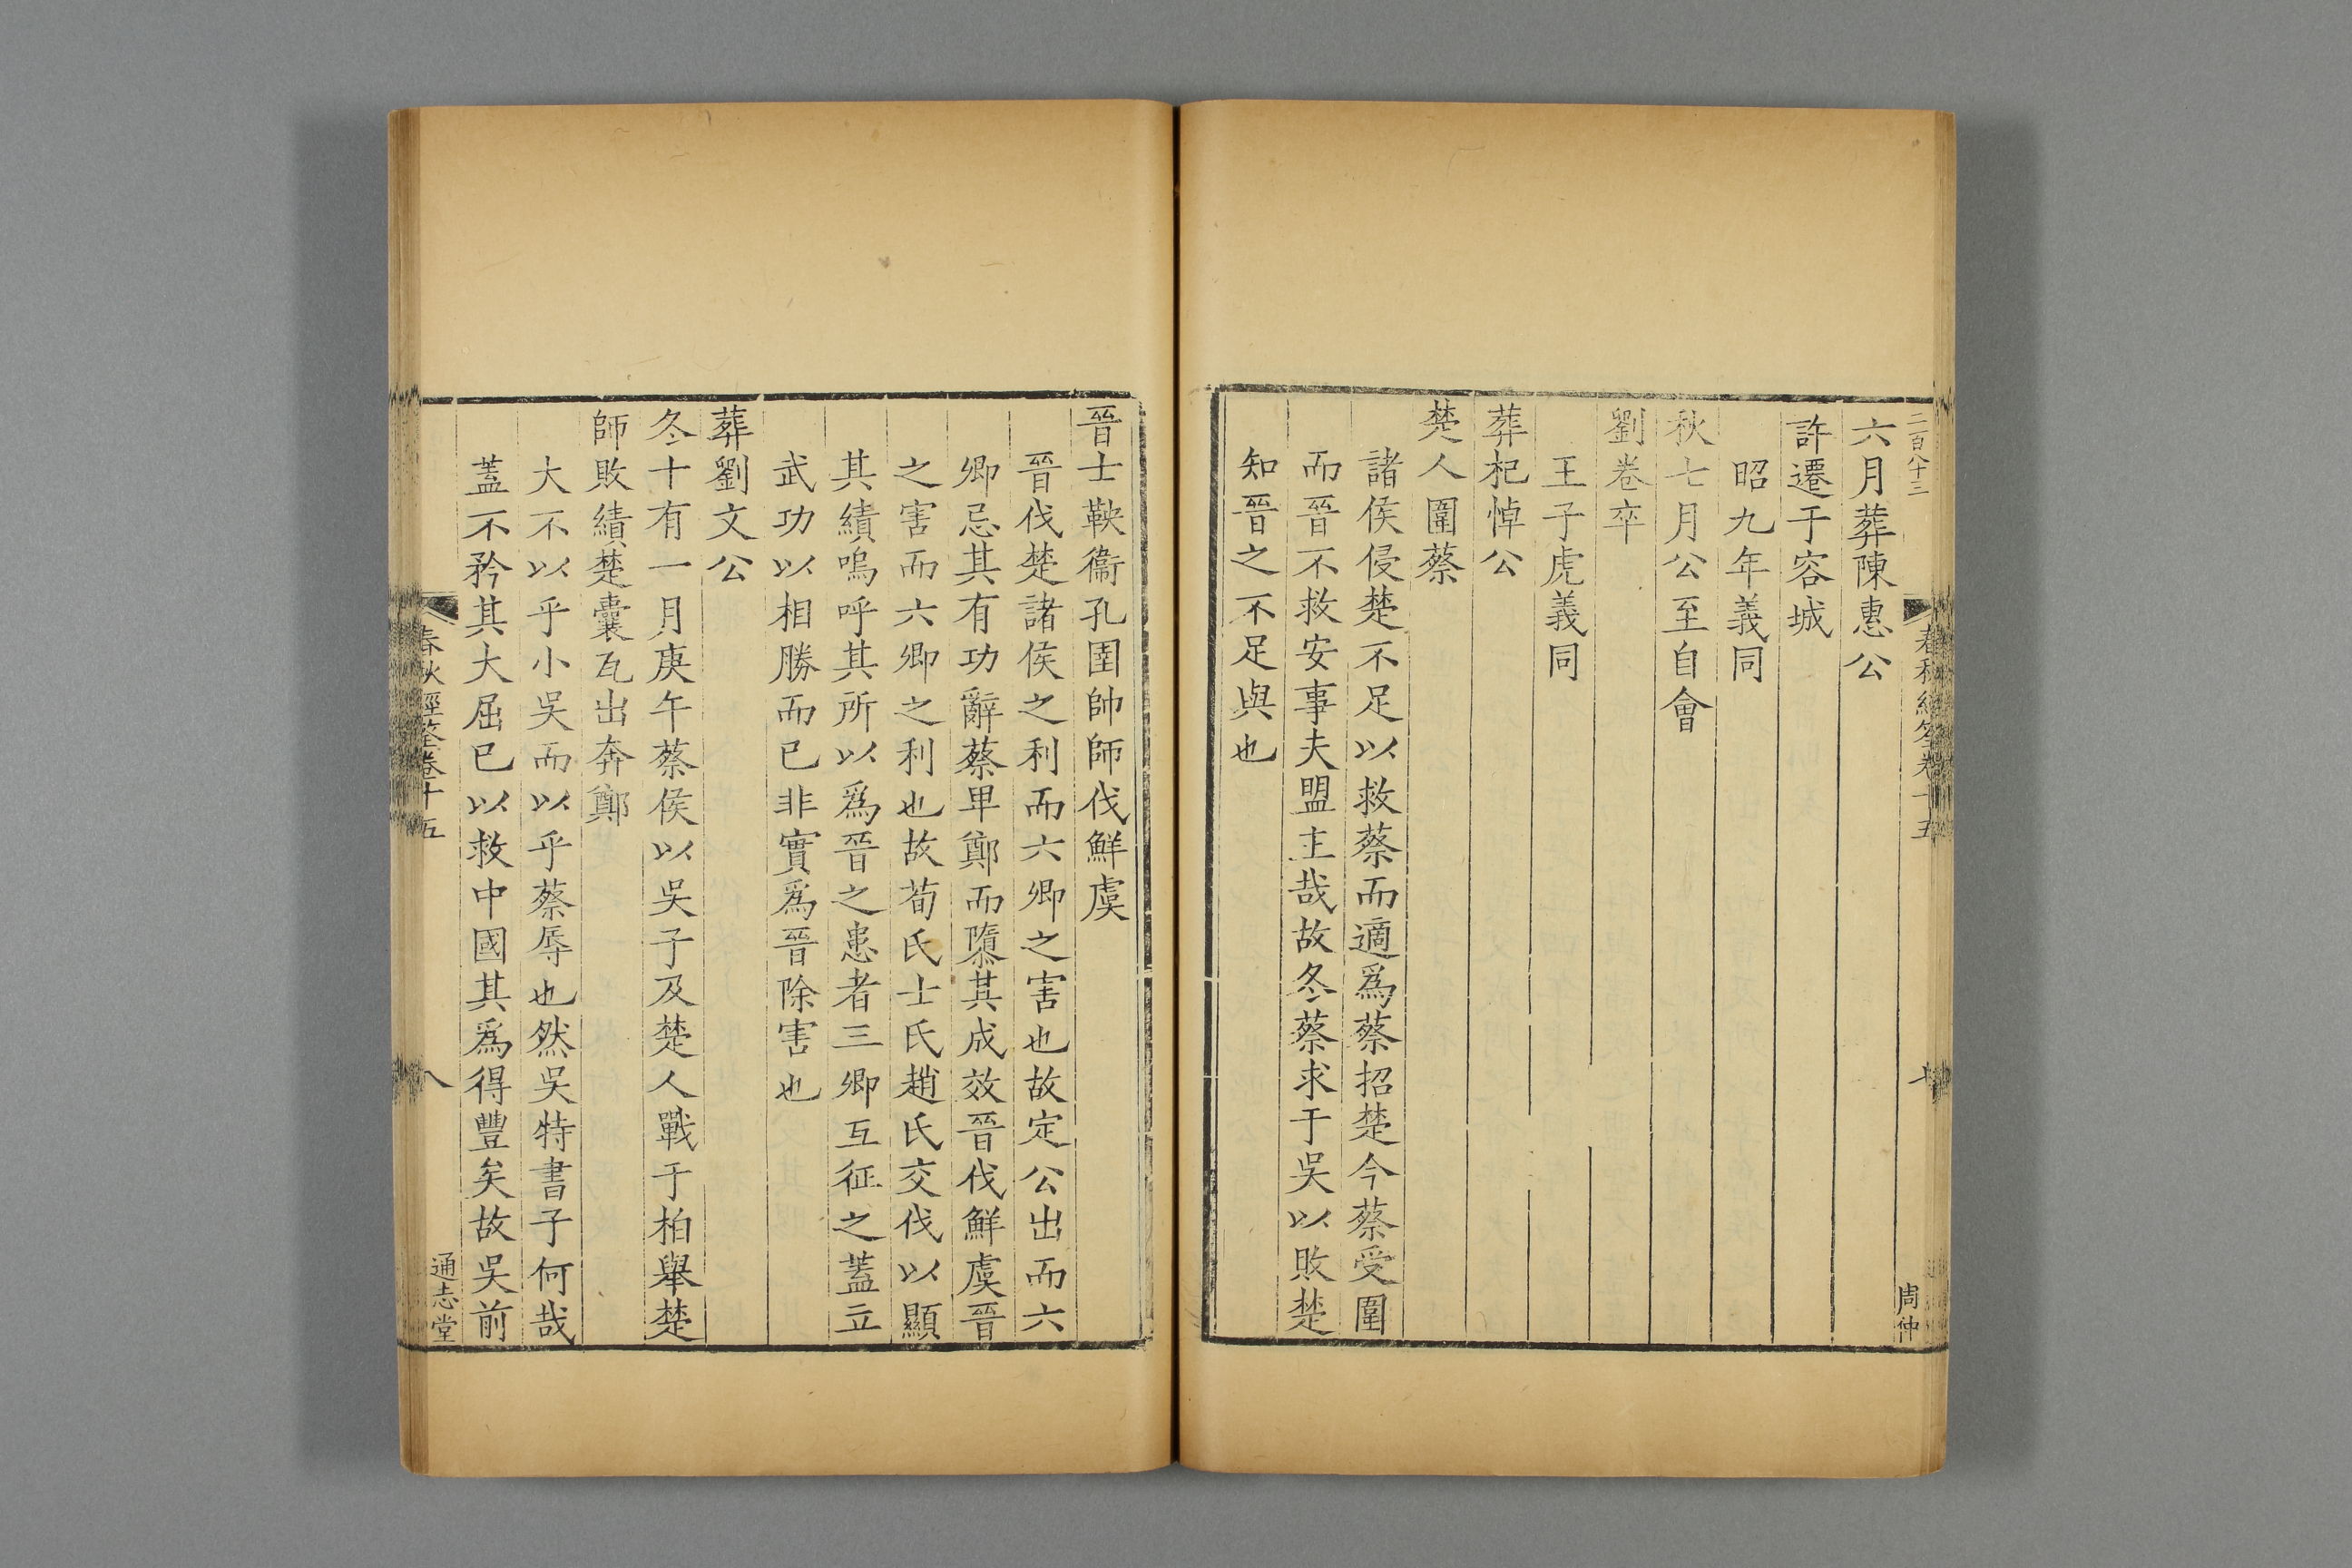 二百八十三
六月葬陳惠公
許遷于容城
昭九年義同
秋七月公至自會
劉卷卒
王子虎義同
葬杞悼公
楚人圍蔡
諸侯侵楚不足以救蔡而適爲蔡招楚今蔡受圍
而晉不救安事夫盟主哉故冬蔡求于吳以敗楚
知晉之不足與也
周仲
晉士鞅衞孔圉帥師伐鮮虞
晉伐楚諸侯之利而六卿之害也故定公出而六
卿忌其有功辭蔡卑鄭而隳其成效晉伐鮮虞晉
之害而六卿之利也故荀氏士氏趙氏交伐以顯
其績嗚呼其所以爲晉之患者三卿互征之蓋立
武功以相勝而已非實爲晉除害也
葬劉文公
冬十有一月庚午蔡侯以吳子及楚人戰于柏舉楚
師敗績楚囊瓦出奔鄭
大不以乎小吳而以乎蔡辱也然吳特書子何哉
蓋不矜其大屈已以救中國其爲得豐矣故吳前
春秋經筌卷十五
八
通志堂